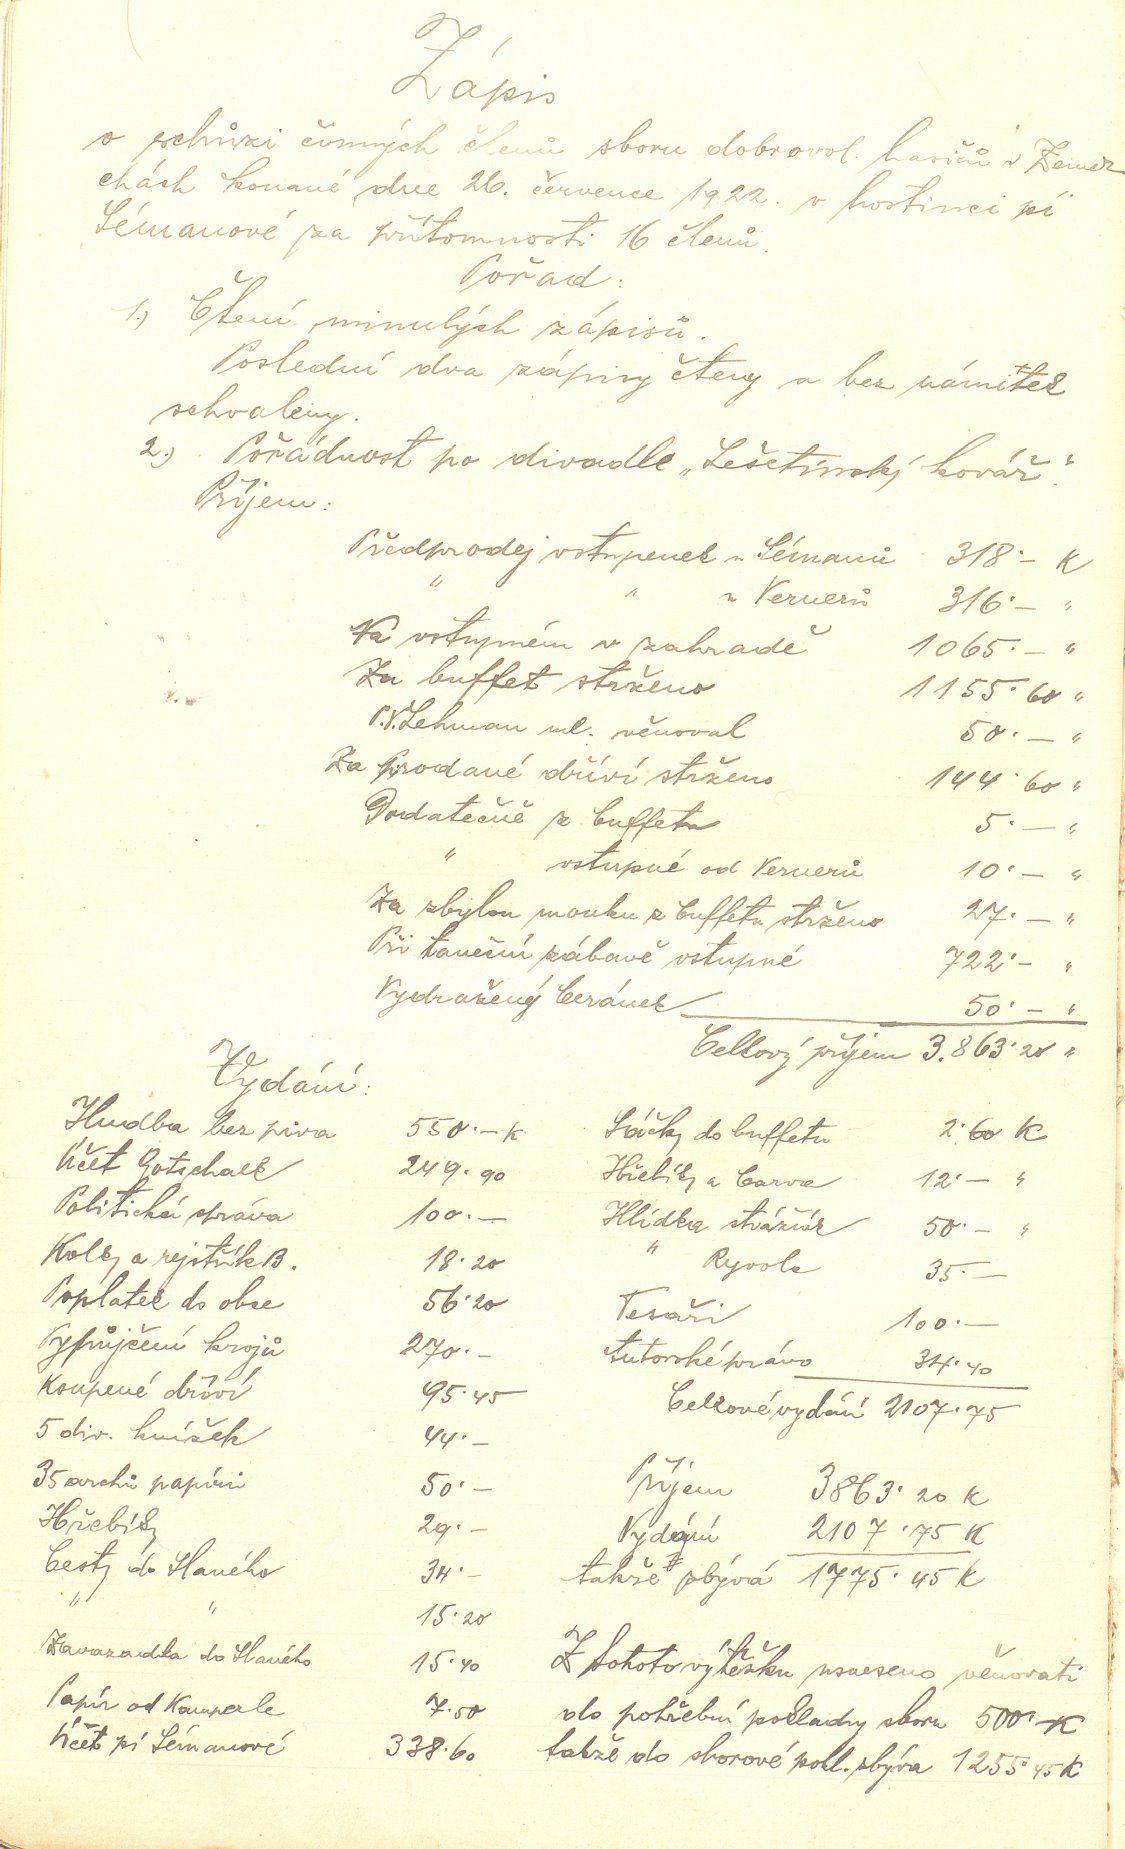 Zápis
o schůzi činných členů sboru dobrovol. hasičů v Zeměe
chách konané dne 26. července 1922. v hostinci pí
Sémanové za přítomnosti 16 členů.
Pořad:
1.) Čtení minulých zápisů.
Poslední dva zápisy čteny a bez námitek
schváleny.
2.) Pořádnost po divadle „Lešetínský kovář“.
Příjem:
Předprodej vstupenek u Sémanů 318·– K
" " u Vernerů 316·– "
Na vstupném v zahradě 1065·– "
Za buffet strženo 1155·60 "
P.V. Lehman ml. věnoval 50·– "
Za prodané dříví strženo 144·60 "
Dodatečně z buffetu 5·– "
" vstupné od Vernerů 10·– "
Za zbylou mouku z buffetu strženo 27·– "
Při taneční zábavě vstupné 722·– "
Vydražený beránek 50·– "
Celkový příjem 3.863·20 "
Vydání:
Hudba bez piva 550·– K
Účet Gotschalk 249·90
Politická správa 100·–
Kolky a rejstřík B. 18·20
Poplatek do obce 56·20
Vypůjčení krojů 270·–
Koupené dříví 95·45
5 div. knížek 44·–
35 archů papíru 50·–
Hřebíky 29·–
Cesty do Slaného 34·–
" " 15·20
Zavazadla do Slaného 15·40
Papír od Kamperle 7·50
Účet pí Sémanové 338·60
Sáčky do buffetu 2·60 K
Hřebíky a barva 12·– "
Hlídka strážník 50·– "
" Ryvola 35·–
Tesaři 100·–
Autorské právo 34·40
Celkové vydání 2107·75
Příjem 3863·20 K
Vydání 2107·75 K
takže zbývá 1775·45 K
Z tohoto výtěžku usneseno věnovati
do potřební pokladny sboru 500·– K
takže do sborové pokl. zbývá 1255·45 K